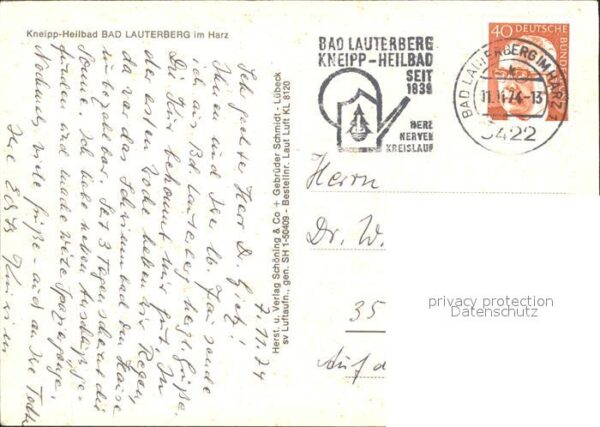 Kneipp-Heilbad BAD LAUTERBERG im Harz
7.11.74
Sehr geehrter Herr D.
Ihnen und Ihrer lb. Frau sende
ich aus Bd. Lauterberg herzl. Grüße.
Die Kur bekommt mir gut. In
der ersten Woche hatten wir Regen,
da war das Schwimmbad im Hause
unbezahlbar. Seit 3 Tagen scheint die
Sonne. Ich habe neben
und mache weite Spaziergänge.
Nochmals viele Grüße - auch an Ihre
Ihre
Herst. u. Verlag Schöning & Co + Gebrüder Schmidt - Lübeck
sv Luftaufn., gen. SH 1-50409 - Bestellnr. Laut Luft KL 8120
BAD LAUTERBERG
KNEIPP-HEILBAD
SEIT
1839
HERZ
NERVEN
KREISLAUF
BAD LAUTERBERG IM HARZ 1
11.11.74-13
3422
40 DEUTSCHE BUND
Herrn
Dr. W.
35
Auf d
privacy protection
Datenschutz